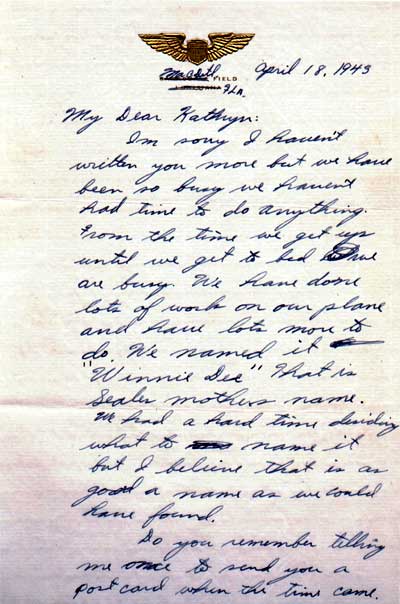 MacDill FIELD April 18, 1943
FLA.
My Dear Kathryn:
Im sorry I haven't
written you more but we have
been so busy we haven't
had time to do anything.
From the time we get up
until we get to bed we
are busy. We have done
lots of work on our plane
and have lots more to
do. We named it
"Winnie Dee" That is
Sealer mothers name.
We had a hard time deciding
what to name it
but I believe that is as
good a name as we could
have found.
Do you remember telling
me once to send you a
post card when the time came.